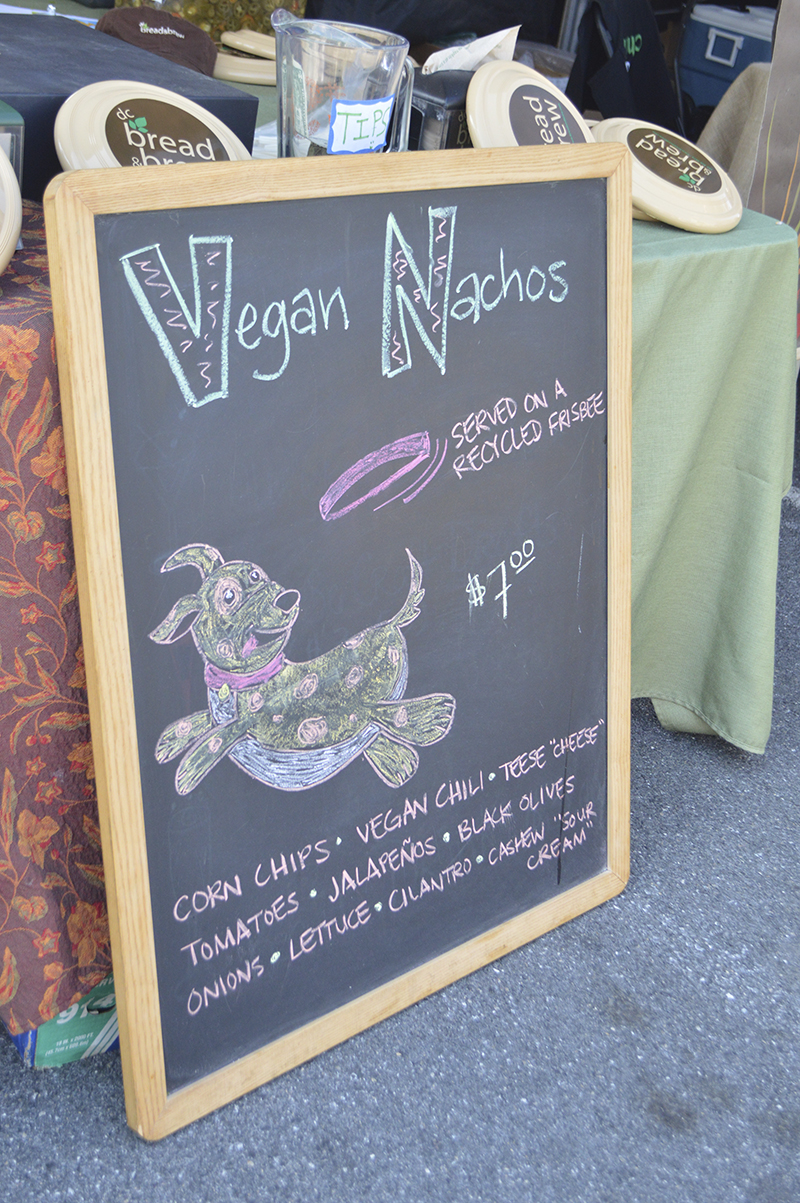 breadsbrew
dc
bread
&
TIPS
bread
dc
bread
& brew
Vegan Nachos
SERVED ON A
RECYCLED FRISBEE
$7.00
CORN CHIPS • VEGAN CHILI • TEESE "CHEESE"
TOMATOES • JALAPEÑOS • BLACK OLIVES
ONIONS • LETTUCE • CILANTRO • CASHEW "SOUR
CREAM"